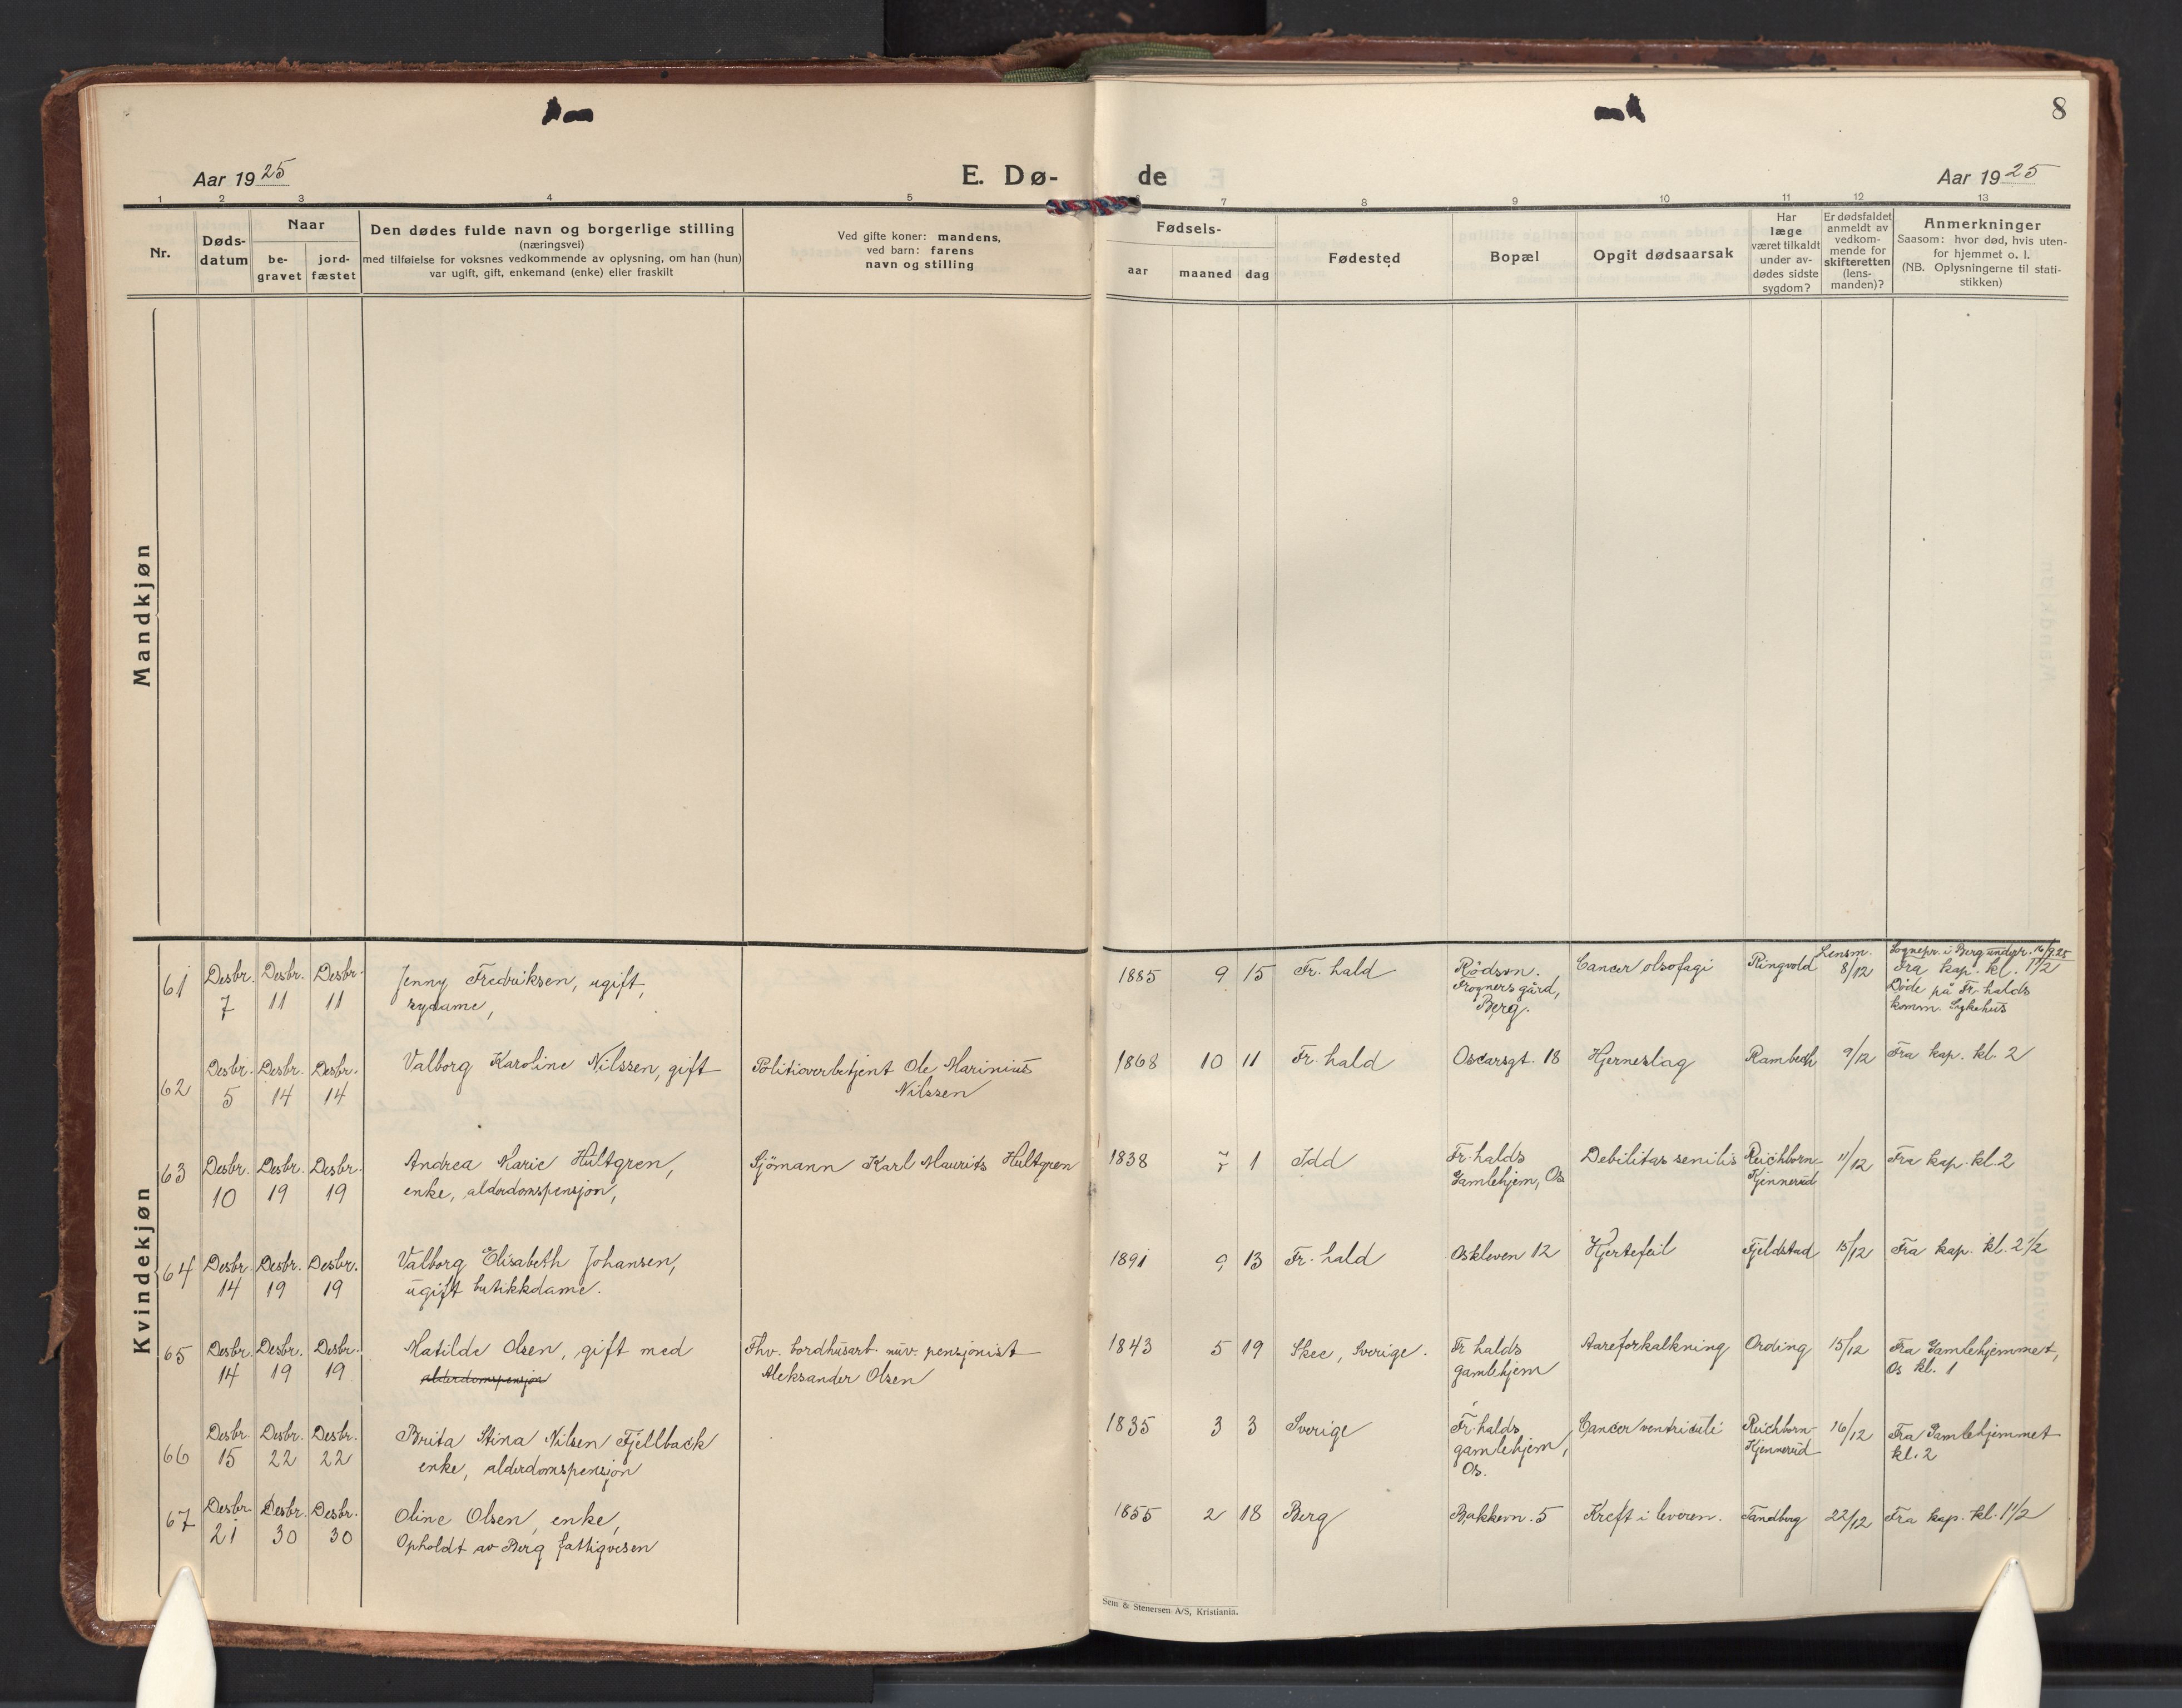 8
Aar 1925
E. Dø-
de
Aar 1925
1 2 3 4 5
7 8 9 10 11 12 13
Nr.
Døds-
datum
Naar
be-
gravet
jord-
fæstet
Den dødes fulde navn og borgerlige stilling
(næringsvei)
med tilføielse for voksnes vedkommende av oplysning, om han (hun)
var ugift, gift, enkemand (enke) eller fraskilt
Ved gifte koner: mandens,
ved barn: farens
navn og stilling
Fødsels-
aar
maaned
dag
Fødested
Bopæl
Opgit dødsaarsak
Har
læge
været tilkaldt
under av-
dødes sidste
sygdom?
Er dødsfaldet
anmeldt av
vedkom-
mende for
skifteretten
(lens-
manden)?
Anmerkninger
Saasom: hvor død, hvis uten-
for hjemmet o. l.
(NB. Oplysningerne til stati-
stikken)
Mandkjøn
Kvindekjøn
61
Desbr. 7
Desbr. 11
Desbr. 11
Jenny Fredriksen, ugift,
sydame,
1885 9 15
Fr. hald
Rödsvn.
Frogners gård,
Berg.
Cancer olsofagi
Ringvold
Lensm.
8/12
Sognepr. i Berg undgr. 16/9 25
Fra kap. kl. 1 1/2
Döde på Fr. halds
komm. Sykehus
62
Desbr. 5
Desbr. 14
Desbr. 14
Valborg Karoline Nilssen, gift
Politioverbetjent Ole Marinius
Nilssen
1868 10 11
Fr. hald
Oscarsgt. 18
Hjerneslag
Rambech
9/12
Fra kap. kl. 2
63
Desbr. 10
Desbr. 19
Desbr. 19
Andrea Marie Hultgren,
enke, alderdomspensjon,
Sjömann Karl Maurits Hultgren
1838 1
Idd
Fr. halds
Gamlehjem, Os
Debilitas senilis
Reichborn-
Kjennerud
11/12
Fra kap. kl. 2
64
Desbr. 14
Desbr. 19
Desbr. 19
Valborg Elisabeth Johansen,
ugift butikkdame.
1891 9 13
Fr. hald
Oskleven 12
Hjertefeil
Fjeldstad
15/12
Fra kap. kl. 2 1/2
65
Desbr. 14
Desbr. 19
Desbr. 19
Matilde Olsen, gift med
alderdomspensjon
Fhv. bordhusarb. nuv. pensjonist
Aleksander Olsen
1843 5 19
Skee, Sverige.
Fr halds
gamlehjem
Aareforkalkning
Ording
15/12
Fra Gamlehjemmet,
Os kl. 1
66
Desbr. 15
Desbr. 22
Desbr. 22
Brita Stina Nilsen Fjellback
enke, alderdomspensjon
1835 3 3
Sverige
Fr. halds
gamlehjem,
Os.
Cancer ventriculi
Reichborn-
Kjennerud
16/12
Fra Gamlehjemmet
kl. 2
67
Desbr. 21
Desbr. 30
Desbr. 30
Oline Olsen, enke,
Opholdt av Berg fattigvesen
1855 2 18
Berg
Bakkevn. 5
Kreft i leveren.
Tandberg
22/12
Fra kap. kl. 1 1/2
Sem & Stenersen A/S, Kristiania.